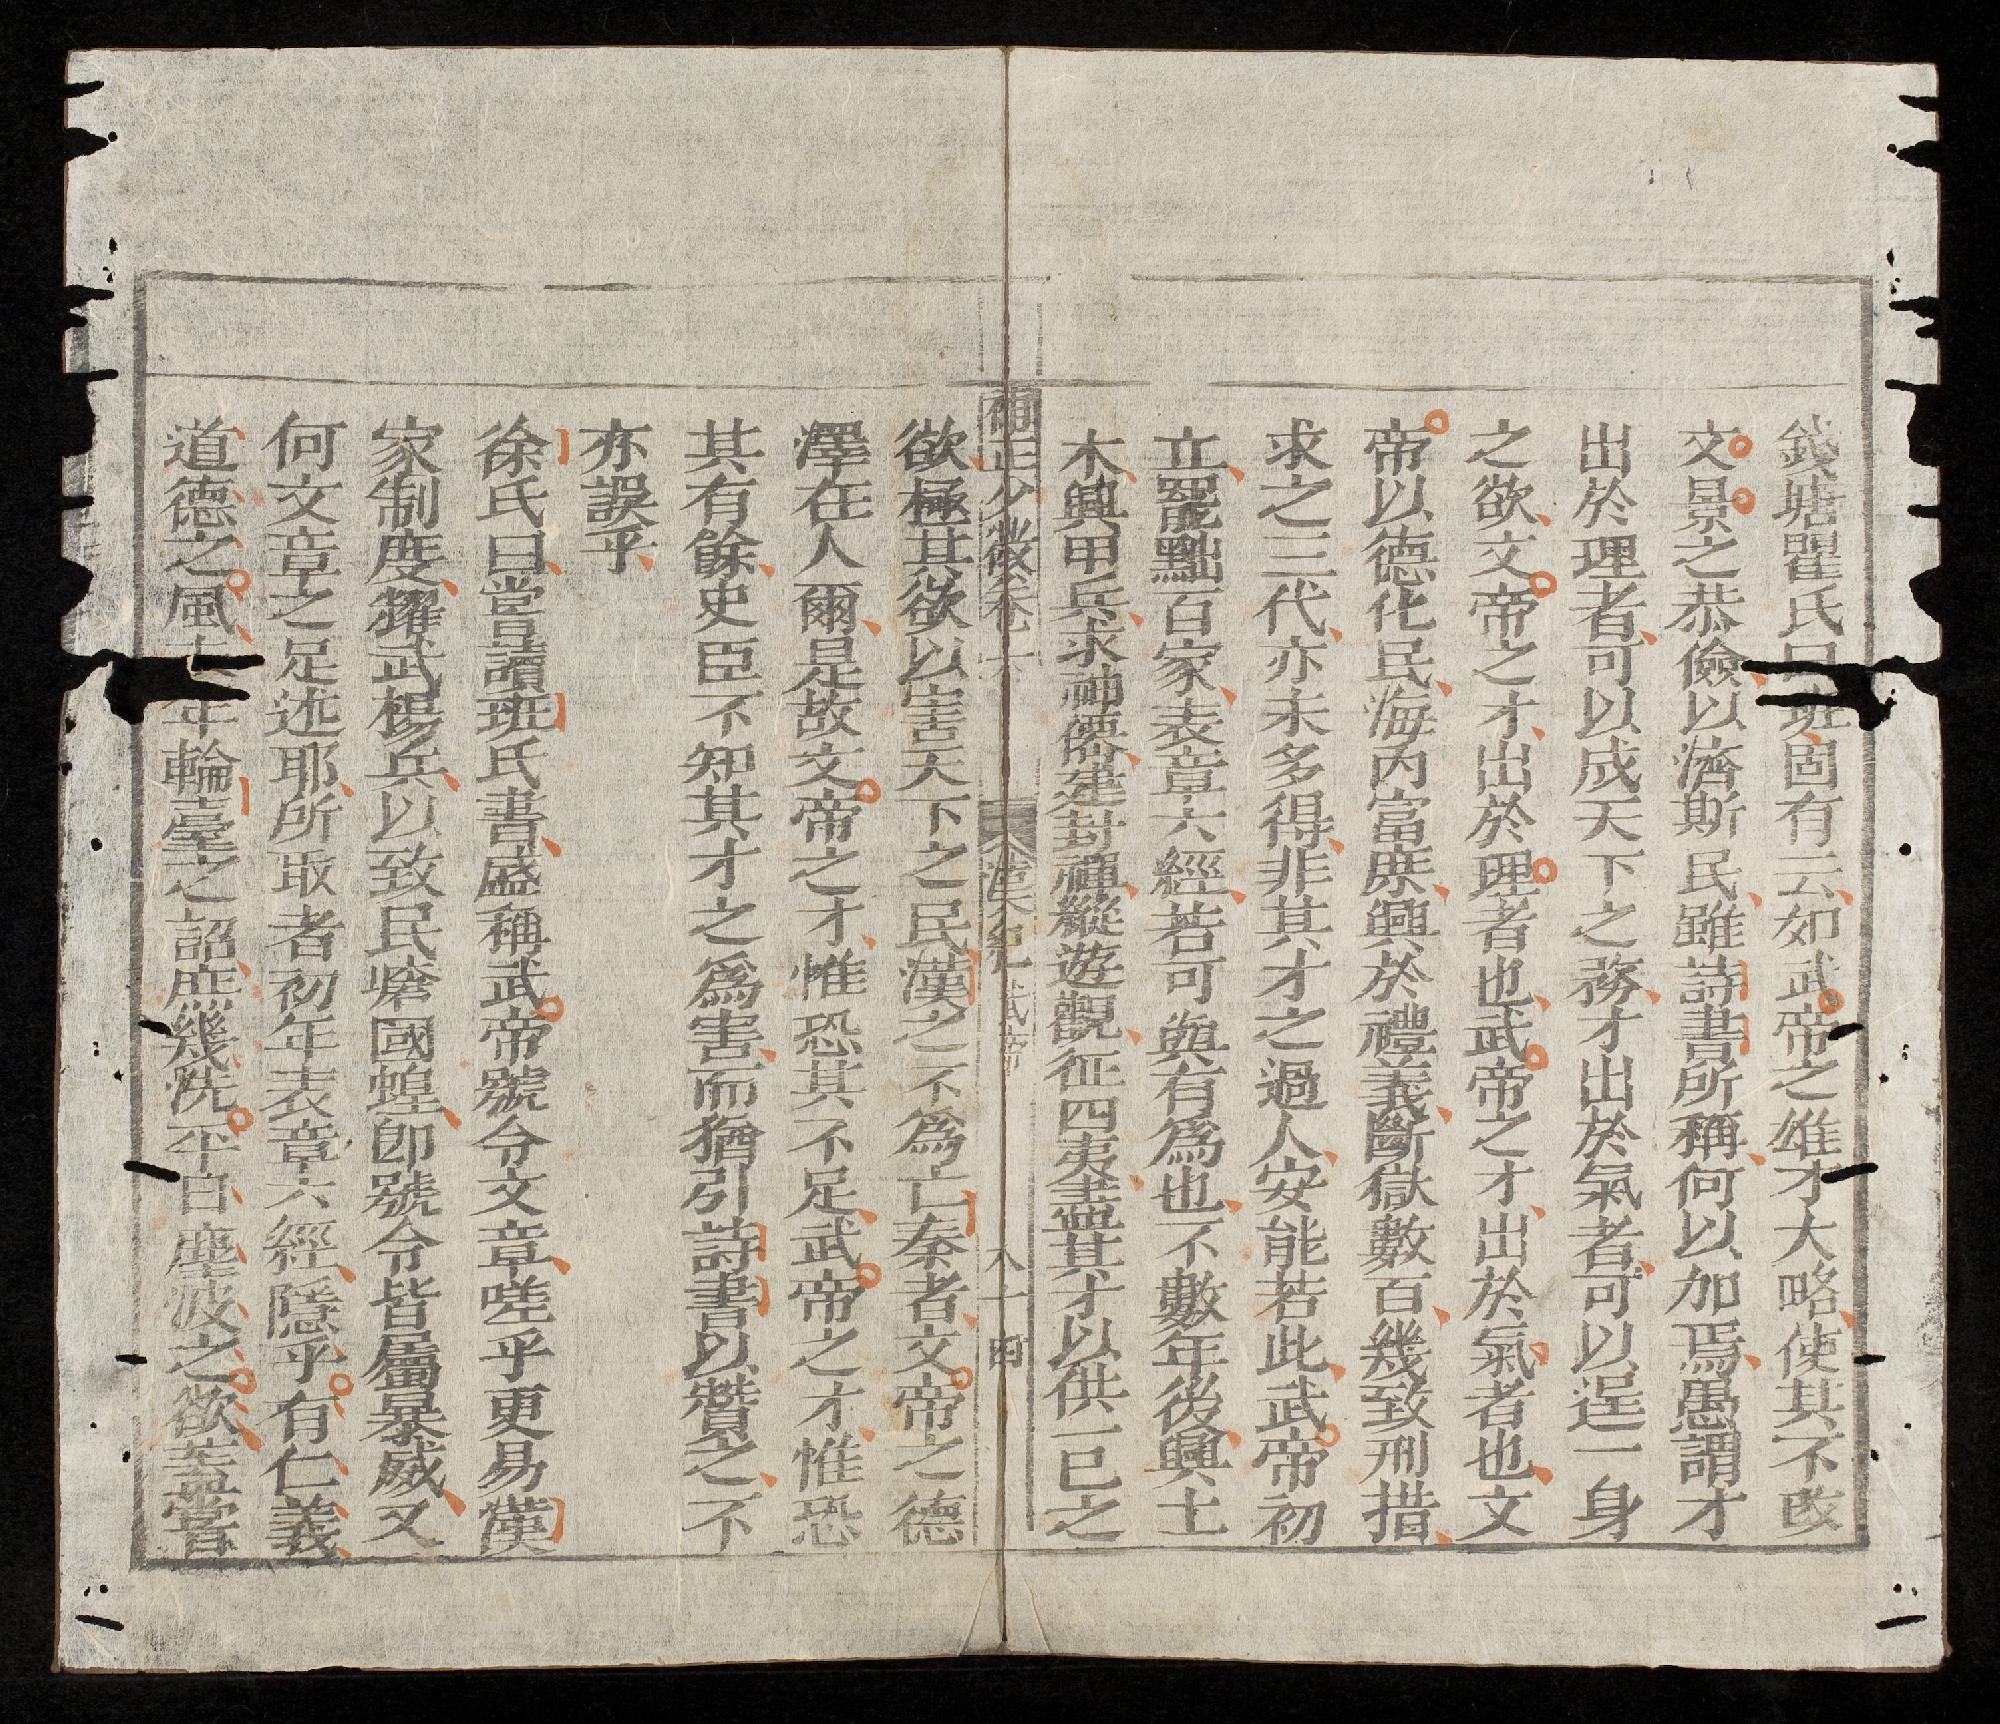 錢塘瞿氏曰班固有云如武帝之雄才大略使其不改
文景之恭儉以濟斯民雖詩書所稱何以加焉愚謂才
出於理者可以成天下之務才出於氣者可以逞一身
之欲文帝之才出於理者也武帝之才出於氣者也文
帝以德化民海內富庶興於禮義斷獄數百幾致刑措
求之三代亦未多得非其才之過人安能若此武帝初
立罷黜百家表章六經若可與有為也不數年後興土
木興甲兵求神僊建封禪縱遊觀征四夷盡其才以供一已之
補正少微卷十下
漢紀 武帝
八十四
欲極其欲以害天下之民漢之不為亡秦者文帝之德
澤在人爾是故文帝之才惟恐其不足武帝之才惟恐
其有餘史臣不知其才之為害而猶引詩書以贊之不
亦誤乎
徐氏曰嘗讀班氏書盛稱武帝號令文章嗟乎更易漢
家制度耀武楊兵以致民嗸國蝗卽號令皆屬暴威又
何文章之足述耶所取者初年表章六經隱乎有仁義
道德之風 年輪臺之詔庶幾洗平白塵波之欲蓋嘗